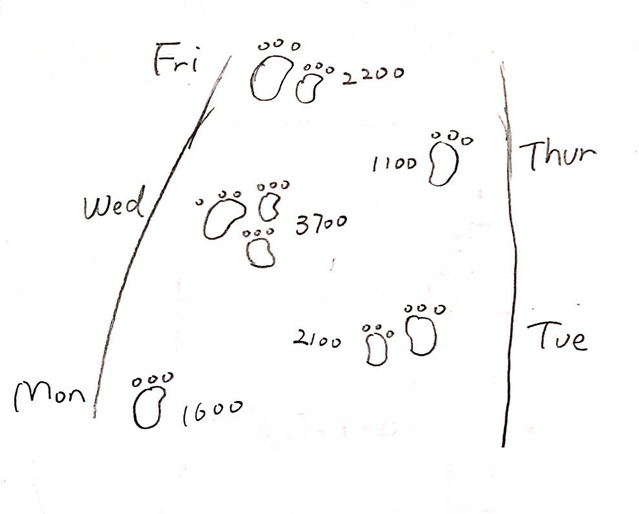 Fri
2200
1100
Thur
Wed
3700
2100
Tue
Mon
1600